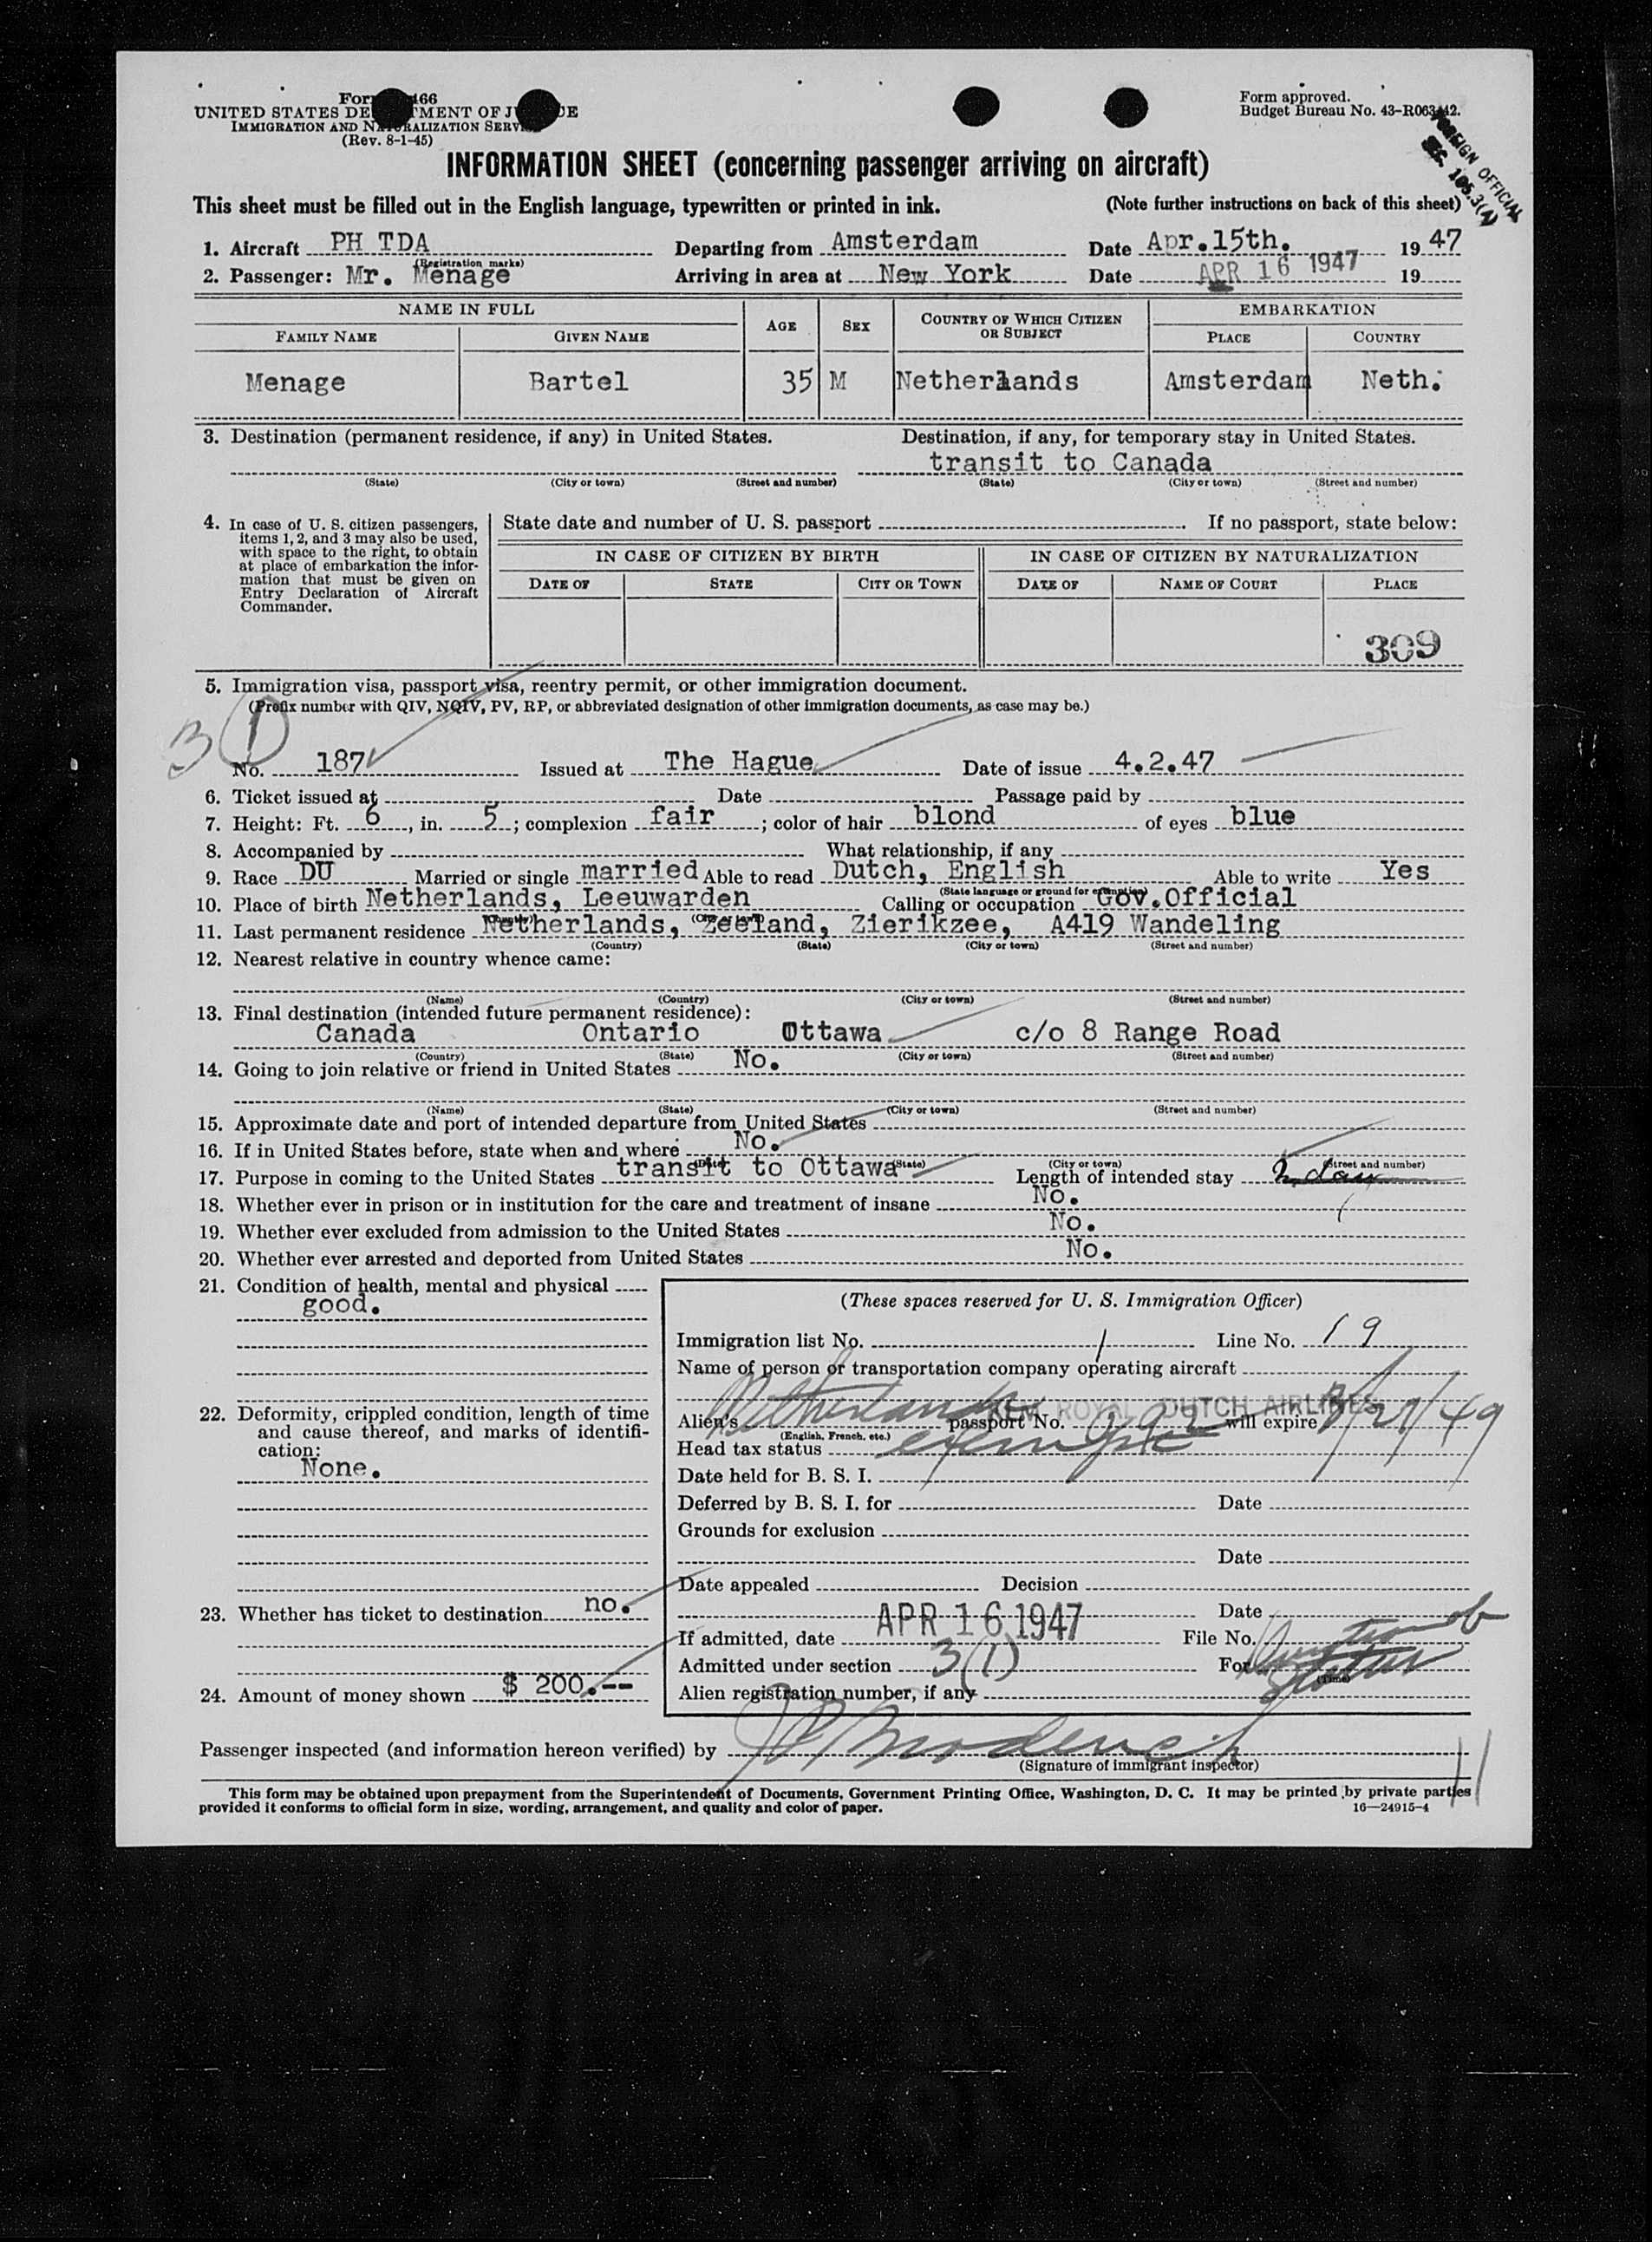 Form 466
UNITED STATES DEPARTMENT OF JUSTICE
IMMIGRATION AND NATURALIZATION SERVICE
(Rev. 8-1-45)
Form approved.
Budget Bureau No. 43-R063-42.
FOREIGN OFFICIAL
SEC. 105.3(A)
INFORMATION SHEET (concerning passenger arriving on aircraft)
This sheet must be filled out in the English language, typewritten or printed in ink. (Note further instructions on back of this sheet)
1. Aircraft PH TDA Departing from Amsterdam Date Apr.15th. 1947
(Registration marks)
2. Passenger: Mr. Menage Arriving in area at New York Date APR 16 1947 19
NAME IN FULL AGE SEX COUNTRY OF WHICH CITIZEN OR SUBJECT EMBARKATION
FAMILY NAME GIVEN NAME PLACE COUNTRY
Menage Bartel 35 M Netherlands Amsterdam Neth.
3. Destination (permanent residence, if any) in United States. Destination, if any, for temporary stay in United States.
transit to Canada
(State) (City or town) (Street and number) (State) (City or town) (Street and number)
4. In case of U. S. citizen passengers, items 1, 2, and 3 may also be used, with space to the right, to obtain at place of embarkation the information that must be given on Entry Declaration of Aircraft Commander.
State date and number of U. S. passport . If no passport, state below:
IN CASE OF CITIZEN BY BIRTH IN CASE OF CITIZEN BY NATURALIZATION
DATE OF STATE CITY OR TOWN DATE OF NAME OF COURT PLACE
309
5. Immigration visa, passport visa, reentry permit, or other immigration document.
(Prefix number with QIV, NQIV, PV, RP, or abbreviated designation of other immigration documents, as case may be.)
3 (1)
No. 187 Issued at The Hague Date of issue 4.2.47
6. Ticket issued at Date Passage paid by
7. Height: Ft. 6, in. 5; complexion fair; color of hair blond of eyes blue
8. Accompanied by What relationship, if any
9. Race DU Married or single married Able to read Dutch, English Able to write Yes
(State language or ground for exemption)
10. Place of birth Netherlands, Leeuwarden Calling or occupation Gov.Official
(Country) (City or town)
11. Last permanent residence Netherlands, Zeeland, Zierikzee, A419 Wandeling
(Country) (State) (City or town) (Street and number)
12. Nearest relative in country whence came:
(Name) (Country) (City or town) (Street and number)
13. Final destination (intended future permanent residence):
Canada Ontario Ottawa c/o 8 Range Road
(Country) (State) (City or town) (Street and number)
14. Going to join relative or friend in United States No.
(Name) (State) (City or town) (Street and number)
15. Approximate date and port of intended departure from United States
16. If in United States before, state when and where No.
(Date) (State) (City or town) (Street and number)
17. Purpose in coming to the United States transit to Ottawa Length of intended stay
18. Whether ever in prison or in institution for the care and treatment of insane No.
19. Whether ever excluded from admission to the United States No.
20. Whether ever arrested and deported from United States No.
21. Condition of health, mental and physical
good.
22. Deformity, crippled condition, length of time and cause thereof, and marks of identification:
None.
23. Whether has ticket to destination no.
24. Amount of money shown $ 200.--
(These spaces reserved for U. S. Immigration Officer)
Immigration list No. 1 Line No. 19
Name of person or transportation company operating aircraft
ROYAL DUTCH AIRLINES
Alien's Netherlands passport No. will expire /21/49
(English, French, etc.)
Head tax status exempt
Date held for B. S. I.
Deferred by B. S. I. for Date
Grounds for exclusion
Date
Date appealed Decision
Date
If admitted, date APR 16 1947 File No.
Admitted under section 3(1) For Duration of Status
(Time)
Alien registration number, if any
Passenger inspected (and information hereon verified) by
(Signature of immigrant inspector)
This form may be obtained upon prepayment from the Superintendent of Documents, Government Printing Office, Washington, D. C. It may be printed by private parties
provided it conforms to official form in size, wording, arrangement, and quality and color of paper. 16—24915-4